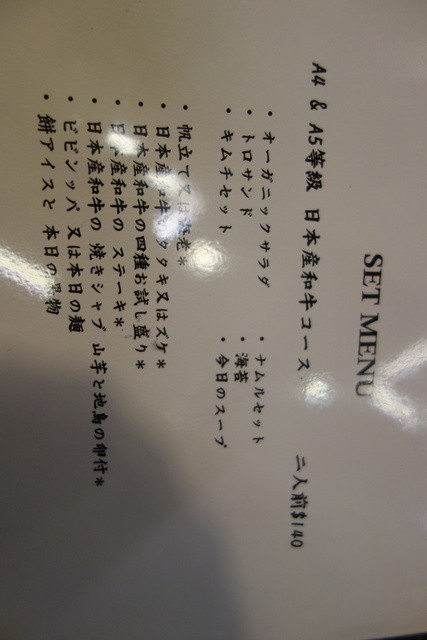 SET MENU
A4 & A5等級 日本産和牛コース 二人前$140
・オーガニックサラダ ・ナムルセット
・トロサンド ・海苔
・キムチセット ・今日のスープ
・帆立て又は 老*
・日本産和牛 タタキ又はズケ*
・日本産和牛の四種お試し盛り*
・日本産和牛の ステーキ*
・日本産和牛の 焼きシャブ 山芋と地鳥の卵付*
・ビビンッパ 又は本日の麺
・餅アイスと 本日の果物